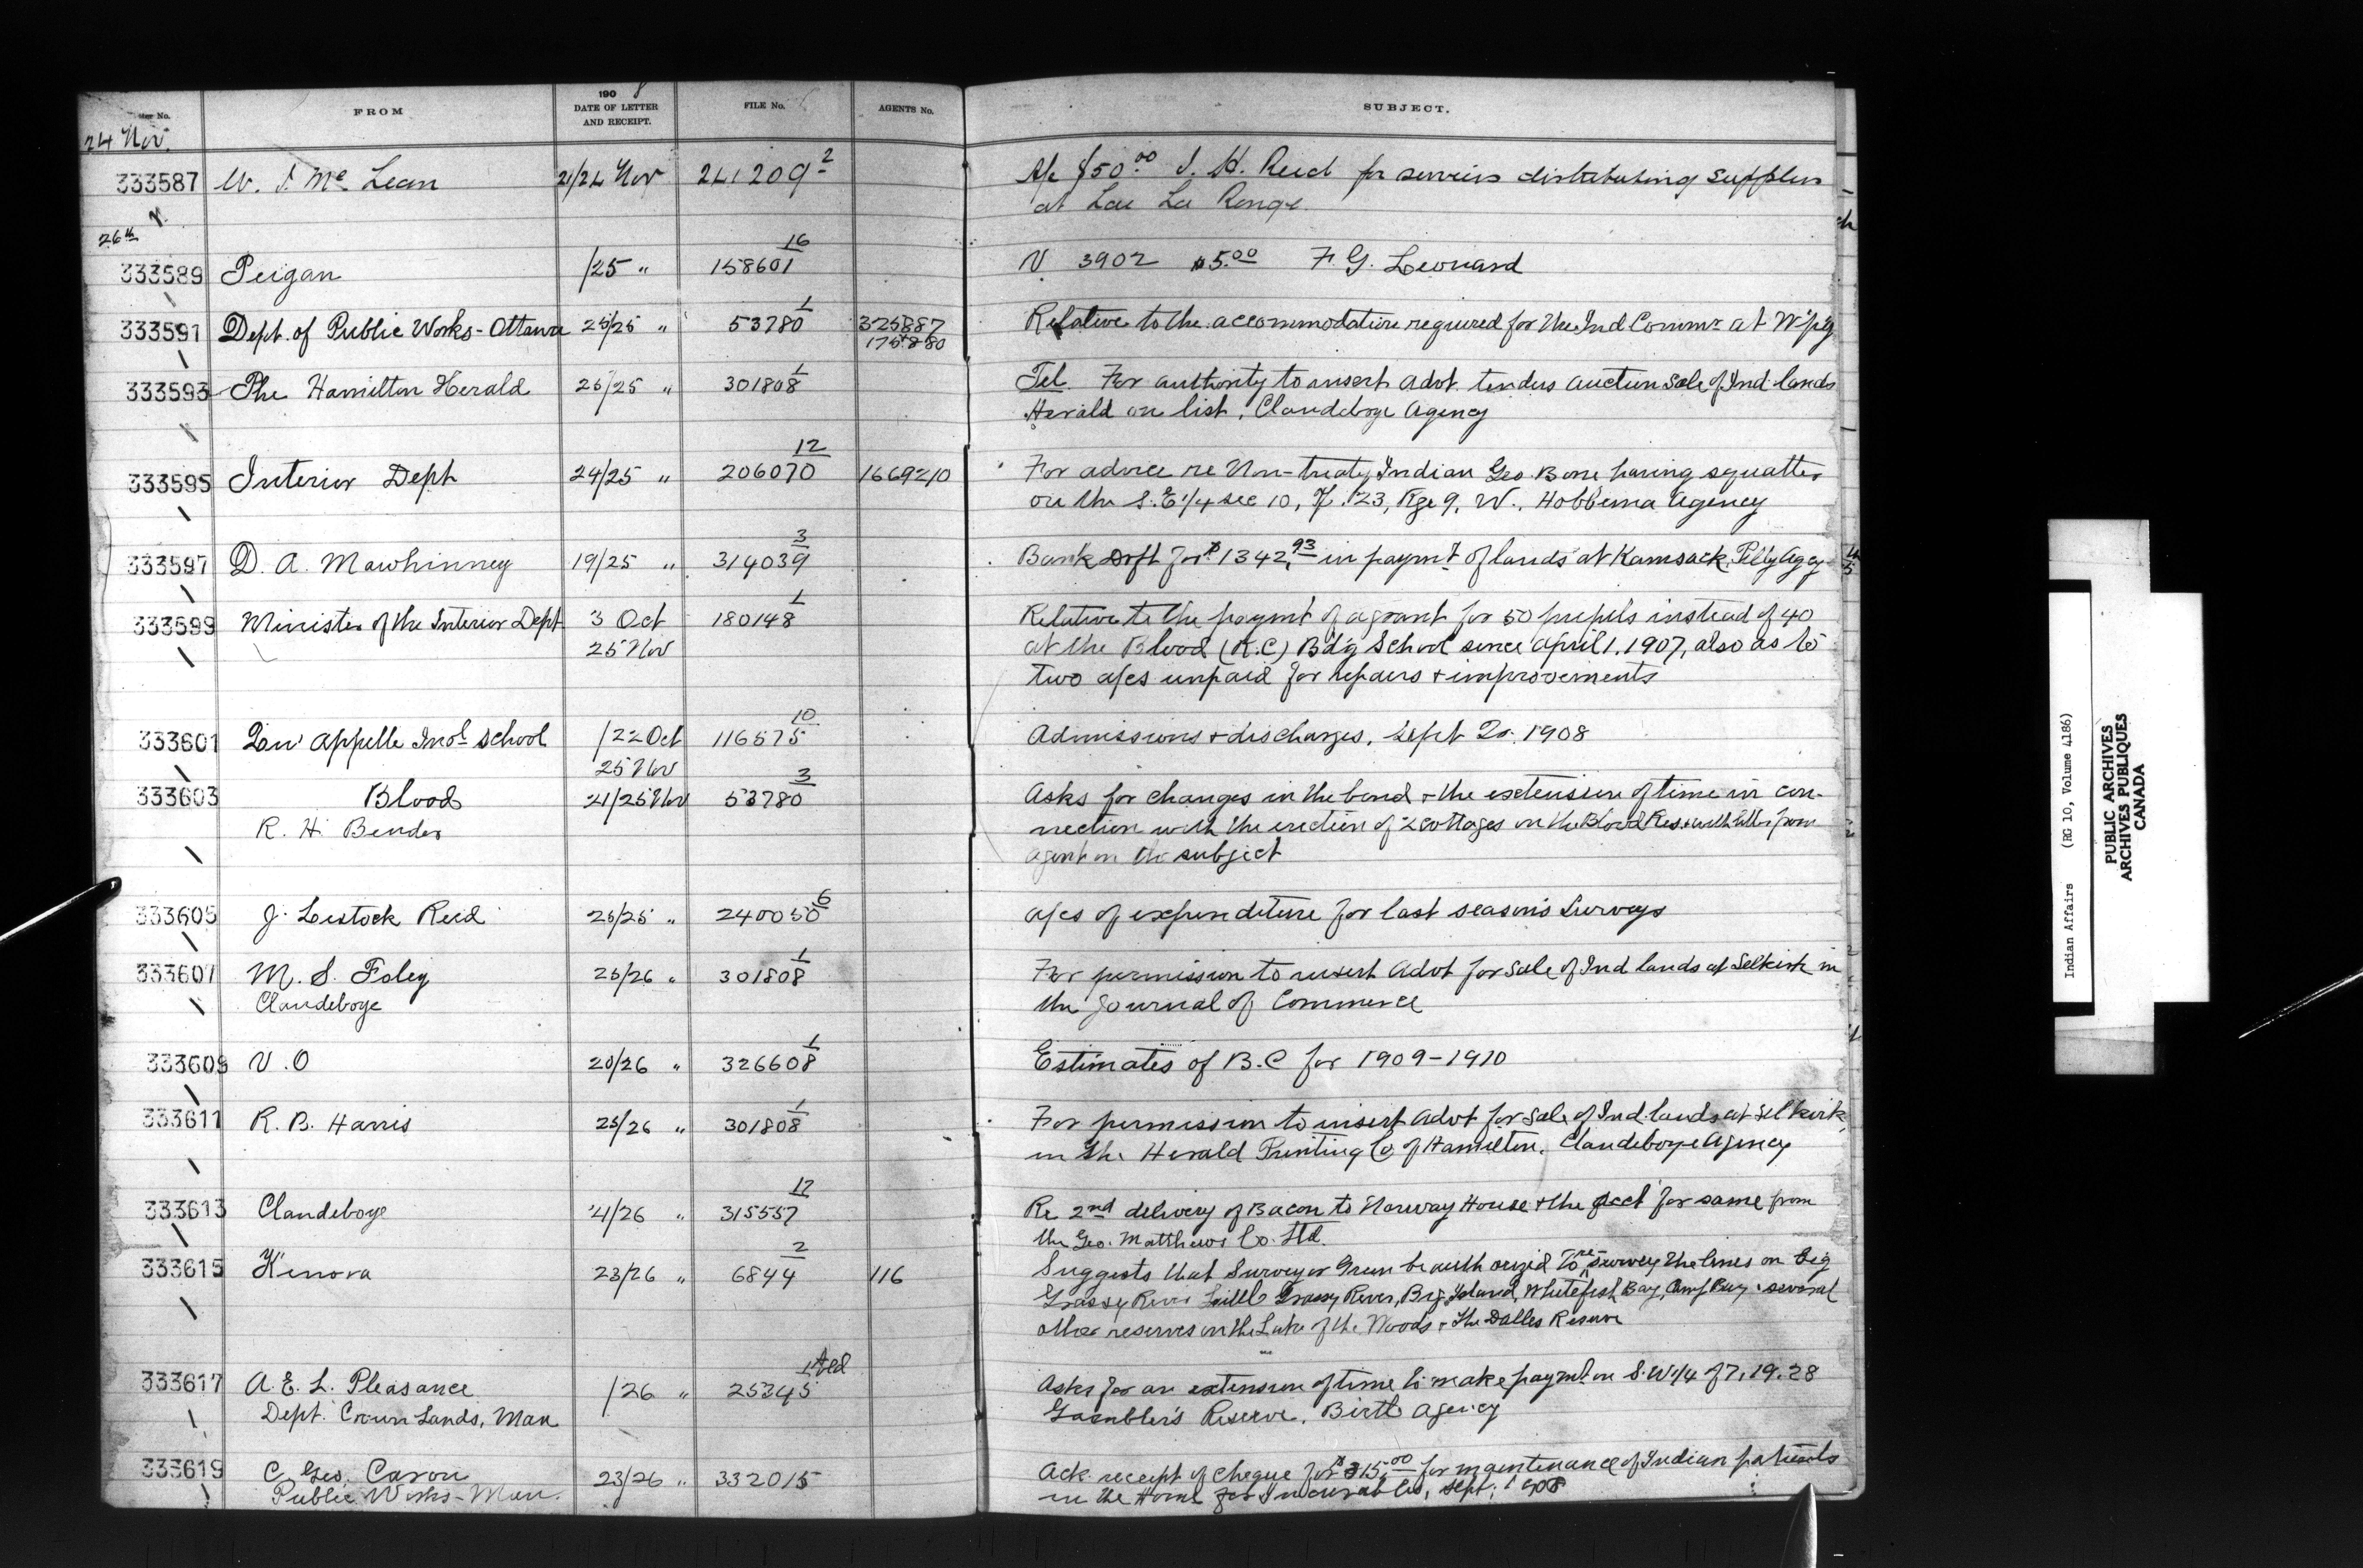 190 8
Letter No. FROM DATE OF LETTER AND RECEIPT. FILE No. AGENTS No. SUBJECT.
24 Nov.
333587 W. J. McLean 21/24 Nov 241209 2 A/c $50.00 J. H. Reid for services distributing supplies
at Lac La Ronge
26th
333589 Peigan /25 " 158601 16 V 3902 $5.00 F. G. Leonard
333591 Dept. of Public Works - Ottawa 25/25 " 53780 1 325887 Relative to the accommodation required for the Ind Commr at W'p'g
175880
333593 The Hamilton Herald 25/25 " 301808 1 Tel. For authority to insert Advt. tenders auction sale of Ind lands
Herald on list, Clandeboye Agency
333595 Interior Dept 24/25 " 206070 12 1669210 For advice re Non-treaty Indian Geo. Bone having squatted
on the S.E 1/4 sec 10, Tp. 23, Rge 9, W., Hobbema Agency
333597 D. A. Mawhinney 19/25 " 314039 3 Bank Drft for $1342.93 in paymt of lands at Kamsack, Pelly Agcy
333599 Minister of the Interior Dept 3 Oct 180148 1 Relative to the paymt of a grant for 50 pupils instead of 40
25 Nov at the Blood (R.C) Bd'g School since April 1, 1907, also as to
two a/cs unpaid for repairs + improvements
333601 Qu'appelle Indl School /22 Oct 116575 10 Admissions + discharges, Sept Qr. 1908
25 Nov
333603 Blood 21/25 Nov 53780 3 Asks for changes in the bond + the extension of time in con-
R. H. Bender nection with the erection of 2 cottages on the Blood Res. with letter from
agent on the subject
333605 J. Lestock Reid 25/25 " 240050 6 a/cs of expenditure for last season's surveys
333607 M. S. Foley 25/26 " 301808 1 For permission to insert Advt for sale of Ind lands at Selkirk in
Clandeboye the Journal of Commerce
333609 V. O 20/26 " 326608 1 Estimates of B.C for 1909-1910
333611 R. B. Harris 25/26 " 301808 1 For permission to insert Advt for sale of Ind. lands at Selkirk,
in the Herald Printing Co of Hamilton. Clandeboye Agency
333613 Clandeboye 4/26 " 315557 12 Re 2nd delivery of Bacon to Norway House + the acct for same from
the Geo. Matthews Co. Ltd.
333615 Kenora 23/26 " 6844 2 116 Suggests that Surveyor Green be authorized to re survey the lines on Big
Grassy River Little Grassy River, Big Island, Whitefish Bay, several
other reserves on the Lake of the Woods + the Dalles Reserve
333617 A. E. L. Pleasance /26 " 25345 1 Asks for an extension of time to make paymt on S.W 1/4 of 7, 19, 28
Dept. Crown Lands, Man Gambler's Reserve, Birtle Agency
333619 C Geo. Caron 23/26 " 332015 Ack. receipt of cheque for $315.00 for maintenance of Indian patients
Public Works - Man. in the Home for Incurables, Sept. 1908
Indian Affairs (RG 10, Volume 4186)
PUBLIC ARCHIVES
ARCHIVES PUBLIQUES
CANADA